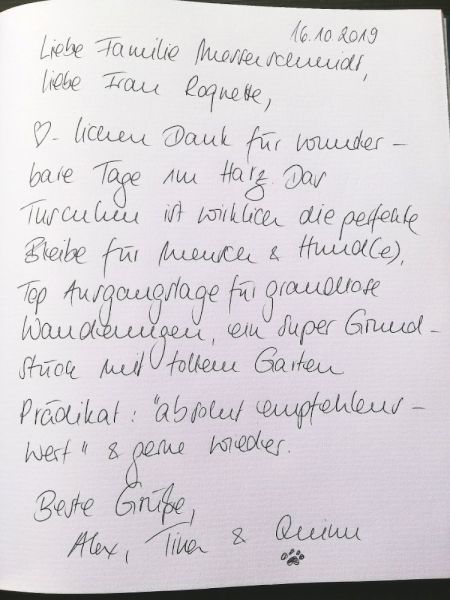 16.10.2019
Liebe Familie Messerschmidt,
liebe Frau Roquette,
♡-lichen Dank für wunder-
bare Tage im Harz. Das
ist wirklich die perfekte
Bleibe für Mensch & Hund(e),
Top Ausgangslage für grandiose
Wanderungen, ein super Grund-
stück mit tollem Garten
Prädikat: "absolut empfehlens-
wert" & gerne wieder.
Beste Grüße,
Alex, Tina & Quinn